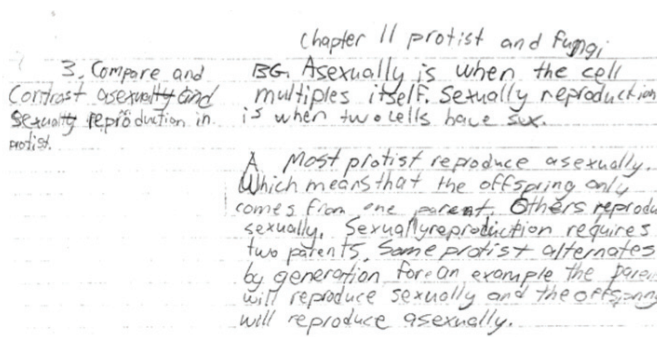 Chapter 11 protist and Fungi
3. Compare and
Contrast asexually and
sexually reproduction in
protist.
BG. Asexually is when the cell
multiples itself. Sexually reproduction
is when two cells have sex.
A Most protist reproduce asexually.
Which means that the offspring only
comes from one parent. Others reprodu
sexually. Sexuallyreproduction requires
two patents. Some protist alternates
by generation forean example the paren
will reproduce sexually and the offspring
will reproduce asexually.